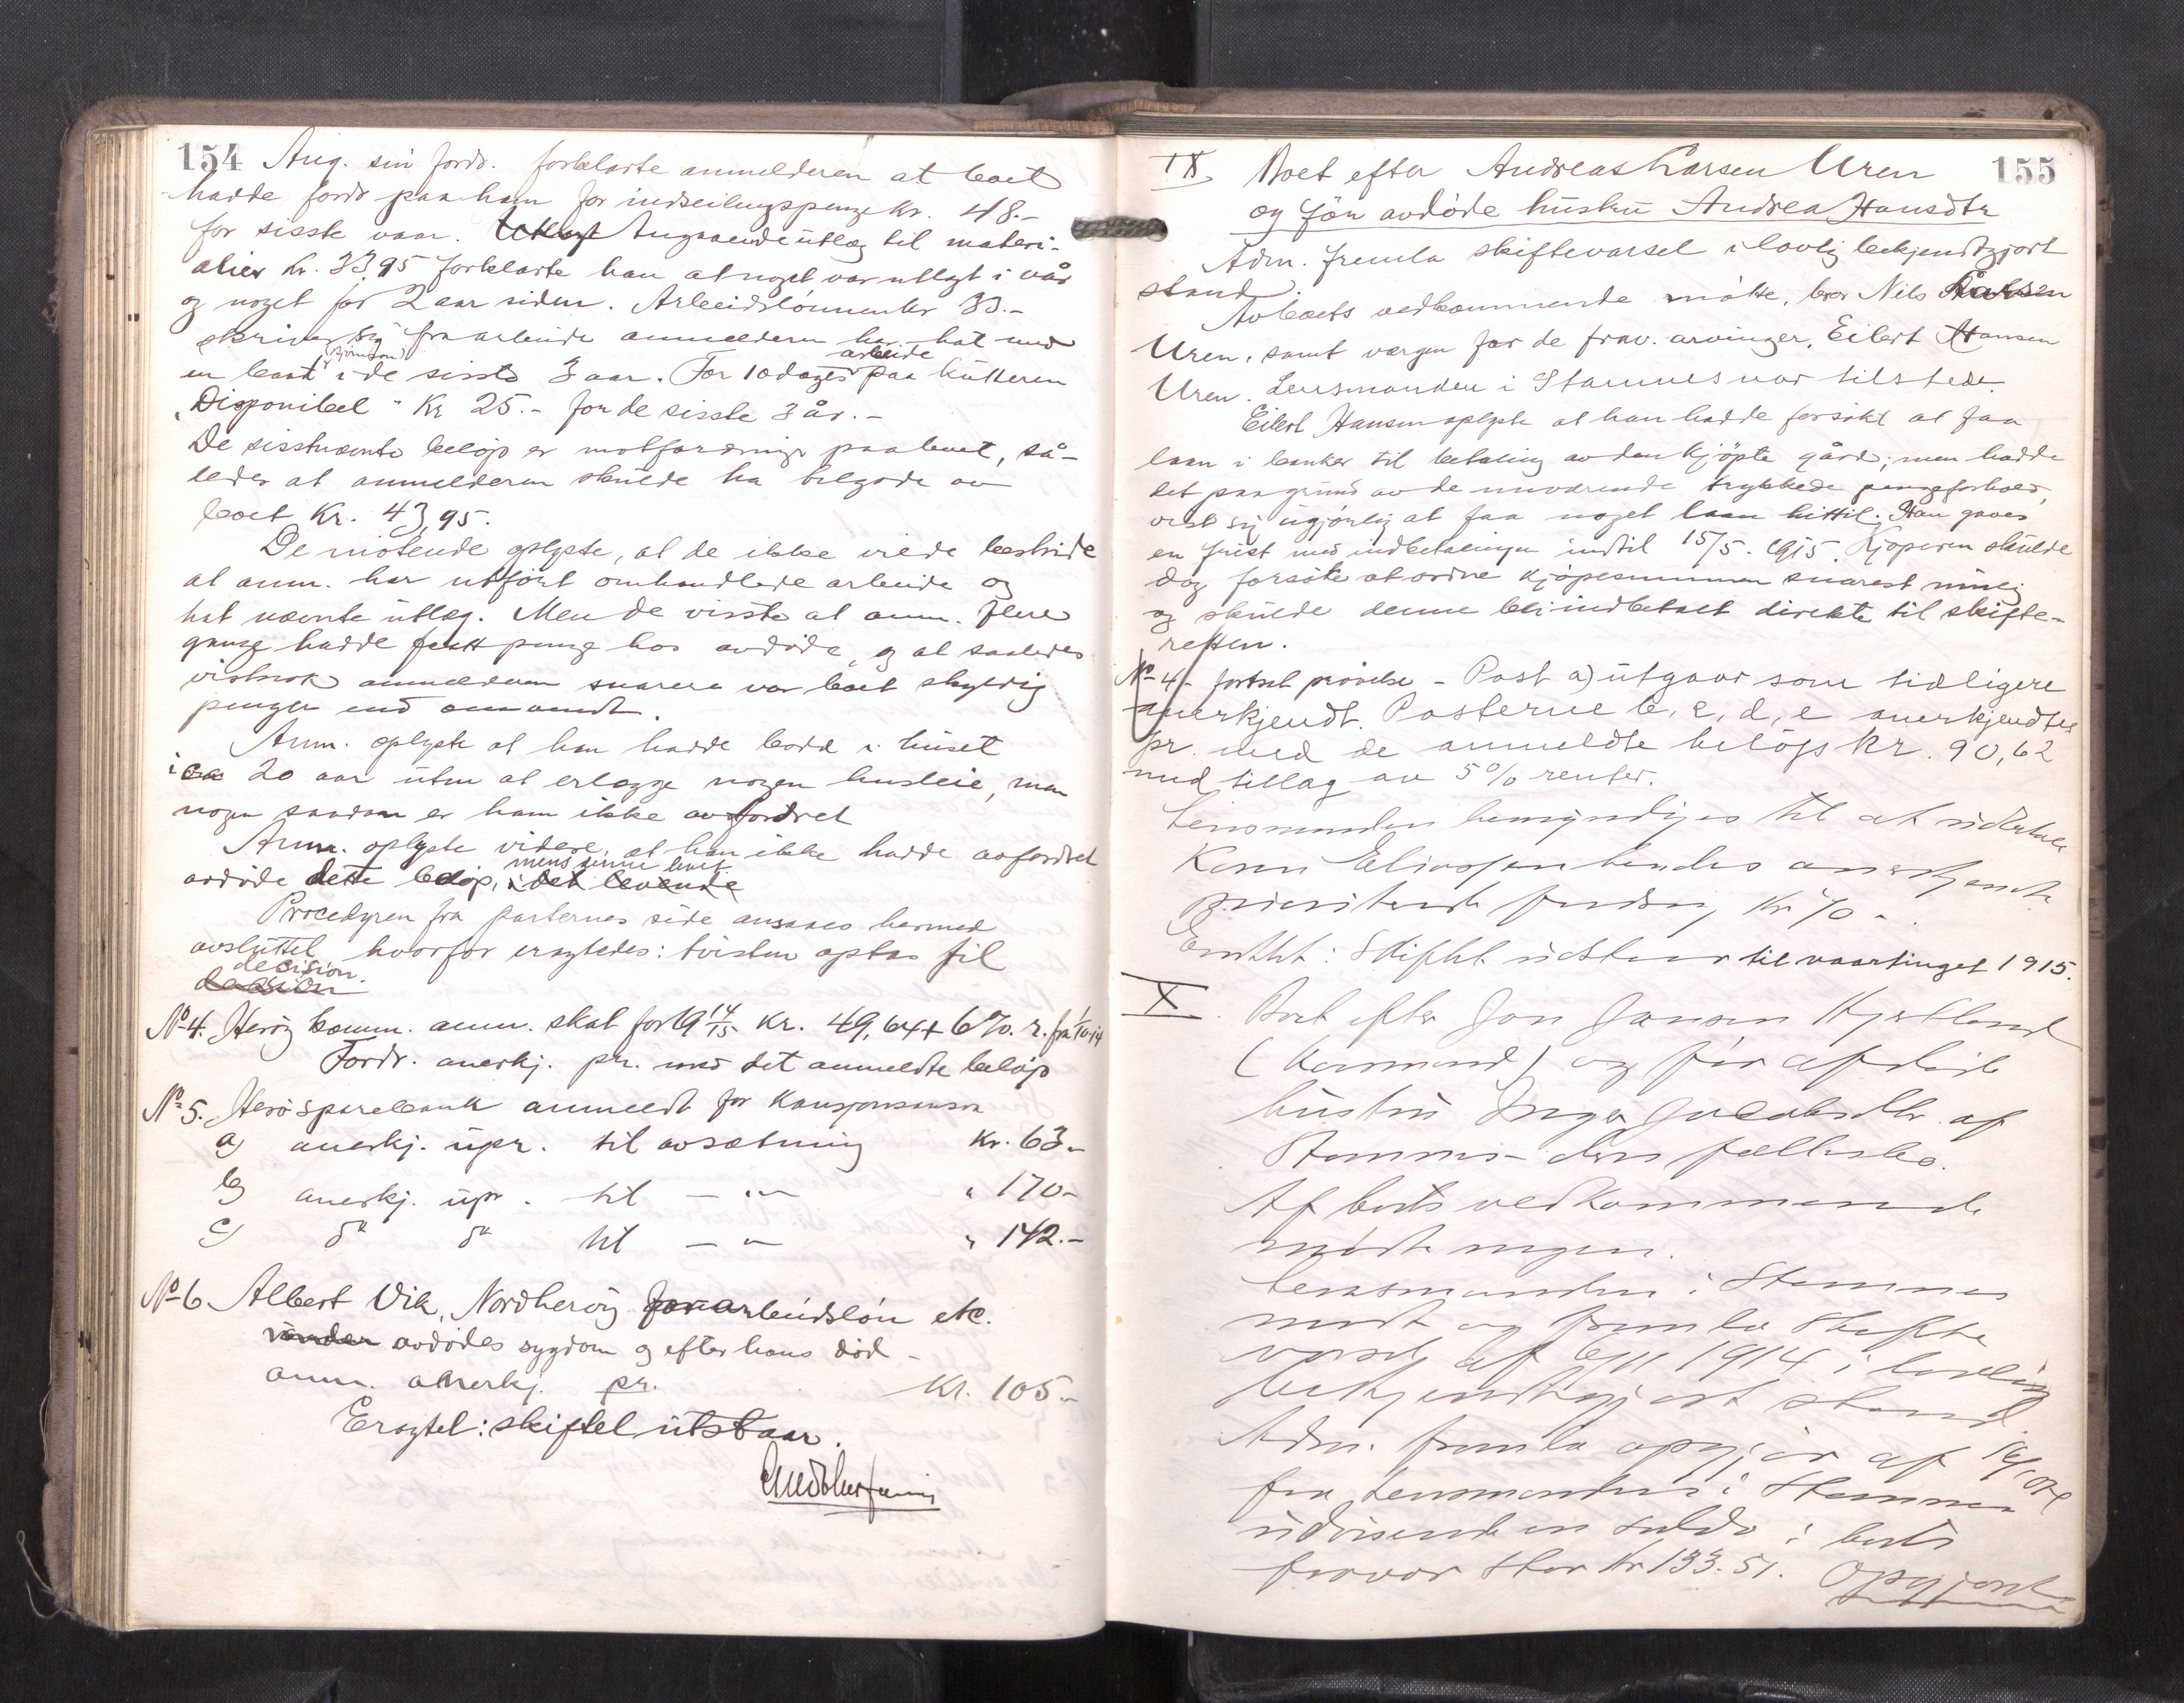 154
Ang. sin fordr. forklarte anmelderen at boet
hadde fordr paa ham for indseilingspenge kr. 48.-
for sisste vaar. Utlagt Angaaende utlæg til materi-
alier kr. 33,95 forklarte han at noget var utlagt i vår
og noget for 2 aar siden. Arbeidslönnen kr 33.-
skriver sig fra arbeide anmelderen har hat med
en baat i de sisste 3 aar. For 10 dages arbeide paa kutteren
"Disponibel" Kr 25.- for de sisste 3 år.-
De sisstnævnte beløp er motfordringer paa boet, så-
ledes at anmelderen skulde ha tilgode av
boet Kr. 43,95.
De mötende oplyste, at de ikke vilde bestride
at anm. har utfört omhandlede arbeide og
hat nævnte utlæg. Men de visste at anm. flere
gange hadde faatt penge hos avdöde, og at saaledes
vistnok anmelderen snarere var boet skyldig
penger end omvendt.
Anm. oplyste at han hadde bodd i huset
i ca 20 aar uten at erlægge nogen husleie, men
nogen saadan er ham ikke avfordret
Anm. oplyste videre, at han ikke hadde avfordret
avdöde dette belöp, mens denne levet i det levende
Procedyren fra parternes side ansaaes hermed
avsluttet, hvorfor eragtedes: tvisten optas til
decision.
No 4. Heröy komm. anm. skat for 19 14/15 kr. 49,64 + 6% r. fra 1/10-14
Fordr. anerkj. pr. med det anmeldte belöp
No 5. Herö sparebank anmeldt for kausjonsansv
a) anerkj. upr. til avsætning Kr. 63.-
b) anerkj. upr. til — " — " 170.-
c) do do til — " — " 142.-
No 6. Albert Vik, Nordheröy for arbeidslön etc.
under avdödes sygdom og efter hans död -
anm. anerkj. pr. Kr. 105.-
Eragtet: skiftet utstaar.
155
IX. Boet efter Andreas Larsen Uren
og för avdöde hustru Andrea Hansdtr
Adm. fremla skiftevarsel i lovlig bekjendtgjort
stand.
Av boets vedkommende mötte, bror Nils Larsen
Uren, samt værgen for de frav. arvinger, Eilert Hansen
Uren. Lensmanden i Stamnes var tilstede.
Eilert Hansen oplyste at han hadde forsökt at faa
laan i banker til betaling av den kjöpte gård; men hadde
det paa grund av de nuværende trykkede pengeforhold,
vist sig ugjörlig at faa noget laan hittil. Han gaves
en frist med indbetalingen indtil 15/5. 1915. Kjöperen skulde
dog forsöke at ordne kjöpesummen snarest mulig
og skulde denne bli indbetalt direkte til skifte-
retten.
No 4 - fortsat prövelse - Post a) utgaar som tidligere
anerkjendt. Posterne b, c, d, e anerkjendtes
pr. med de anmeldte belöp kr. 90,62
med tillæg av 5% renter.
Lensmanden bemyndiges til at utbetale
Karen Eliassen hendes anerkjendte
prioriterede fordring Kr 70 -.
Eragtet: Skiftet utstaar til vaartinget 1915.
X. Boet efter Jon Jansen Hjertland
(Kaarmand) og för afdöde
hustru Inger Jacobsdtr. af
Stamnes - dens fællesbo.
Af boets vedkommende
mödte ingen.
Lensmanden i Stamnes
mödt og fremla skifte
varsel af 6/11 1914 i lovlig
bekjendtgjort stand
Adm. fremla opgjör af
fra Lensmanden i Stamnes
udvisende en saldo i boets
favör stor Kr 133.51. Opgjöret